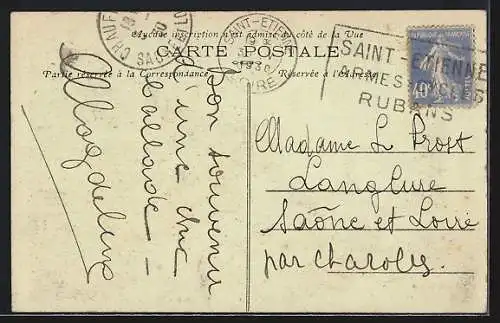 Aucune inscription n'est admise du côté de la Vue
CARTE POSTALE
Partie réservée à la Correspondance
Réservée à l'Adresse
SAINT-ETIENNE
LOIRE
SAINT-ETIENNE
ARMES CYCLES
RUBANS
40c
Bon souvenir
d'une
ballade -
Magdeleine
Madame L Prost
Langlure
Saône et Loire
par Charolles